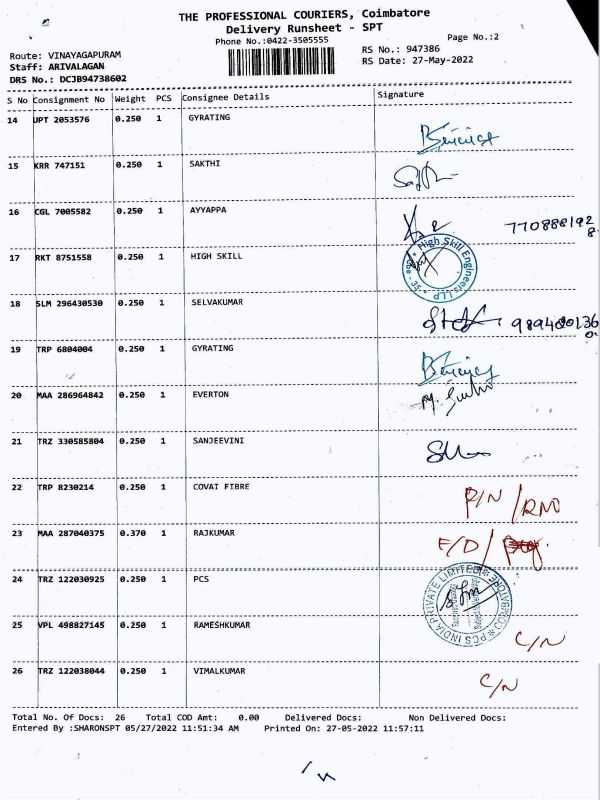 THE PROFESSIONAL COURIERS, Coimbatore
Delivery Runsheet - SPT
Phone No.:0422-3505555
Page No.:2
Route: VINAYAGAPURAM
RS No.: 947386
Staff: ARIVALAGAN
RS Date: 27-May-2022
DRS No.: DCJB94738602
S No Consignment No Weight PCS Consignee Details Signature
14 UPT 2053576 0.250 1 GYRATING
15 KRR 747151 0.250 1 SAKTHI
16 CGL 7005582 0.250 1 AYYAPPA
17 RKT 8751558 0.250 1 HIGH SKILL High Skill Engineers LLP
18 SLM 296430530 0.250 1 SELVAKUMAR
19 TRP 6804004 0.250 1 GYRATING
20 MAA 286964842 0.250 1 EVERTON
21 TRZ 330585804 0.250 1 SANJEEVINI
22 TRP 8230214 0.250 1 COVAI FIBRE P/N /RNO
23 MAA 287040375 0.370 1 RAJKUMAR F/D/
24 TRZ 122030925 0.250 1 PCS PCS INDIA PRIVATE LIMITED COIMBATORE
25 VPL 498827145 0.250 1 RAMESHKUMAR C/N
26 TRZ 122038044 0.250 1 VIMALKUMAR C/N
Total No. Of Docs: 26 Total COD Amt: 0.00 Delivered Docs: Non Delivered Docs:
Entered By :SHARONSPT 05/27/2022 11:51:34 AM Printed On: 27-05-2022 11:57:11